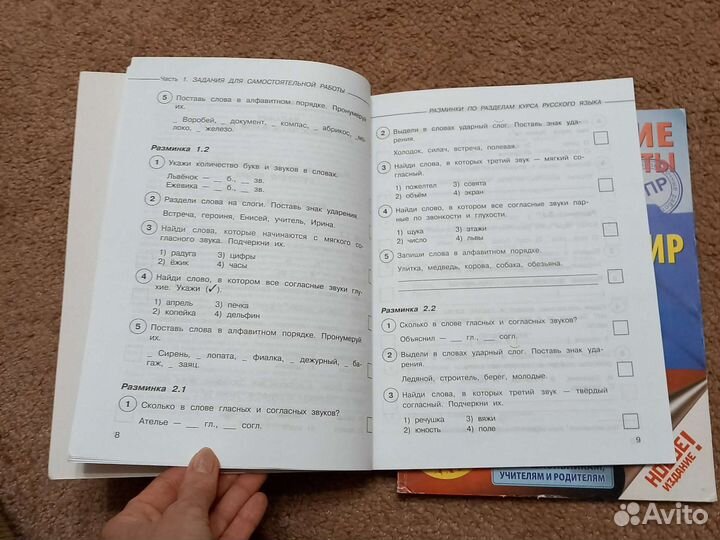 Часть 1. ЗАДАНИЯ ДЛЯ САМОСТОЯТЕЛЬНОЙ РАБОТЫ
5 Поставь слова в алфавитном порядке. Пронумеруй
их.
_ Воробей, _ документ, _ компас, _ абрикос, _ мо-
локо, _ железо.
Разминка 1.2
1 Укажи количество букв и звуков в словах.
Львёнок — __ б., __ зв.
Ежевика — __ б., __ зв.
2 Раздели слова на слоги. Поставь знак ударения.
Встреча, героиня, Енисей, учитель, Ирина.
3 Найди слова, которые начинаются с мягкого со-
гласного звука. Подчеркни их.
1) радуга 3) цифры
2) ёжик 4) часы
4 Найди слово, в котором все согласные звуки глу-
хие. Укажи (✓).
1) апрель 3) печка
2) копейка 4) дельфин
5 Поставь слова в алфавитном порядке. Пронумеруй
их.
_ Сирень, _ лопата, _ фиалка, _ дежурный, _ ба-
гаж, _ заяц.
Разминка 2.1
1 Сколько в слове гласных и согласных звуков?
Ателье — __ гл., __ согл.
8
РАЗМИНКИ ПО РАЗДЕЛАМ КУРСА РУССКОГО ЯЗЫКА
2 Выдели в словах ударный слог. Поставь знак уда-
рения.
Холодок, силач, встреча, полевая.
3 Найди слова, в которых третий звук — мягкий со-
гласный.
1) пожелтел 3) совята
2) объём 4) экран
4 Найди слово, в котором все согласные звуки пар-
ные по звонкости и глухости.
1) щука 3) этажи
2) число 4) львы
5 Запиши слова в алфавитном порядке.
Улитка, медведь, корова, собака, обезьяна.
Разминка 2.2
1 Сколько в слове гласных и согласных звуков?
Объяснил — __ гл., __ согл.
2 Выдели в словах ударный слог. Поставь знак уда-
рения.
Ледяной, строитель, берег, молодые.
3 Найди слова, в которых третий звук — твёрдый
согласный. Подчеркни их.
1) речушка 3) вяжи
2) юность 4) поле
9
УЧИТЕЛЯМ И РОДИТЕЛЯМ
НОВОЕ!
ИЗДАНИЕ
Avito